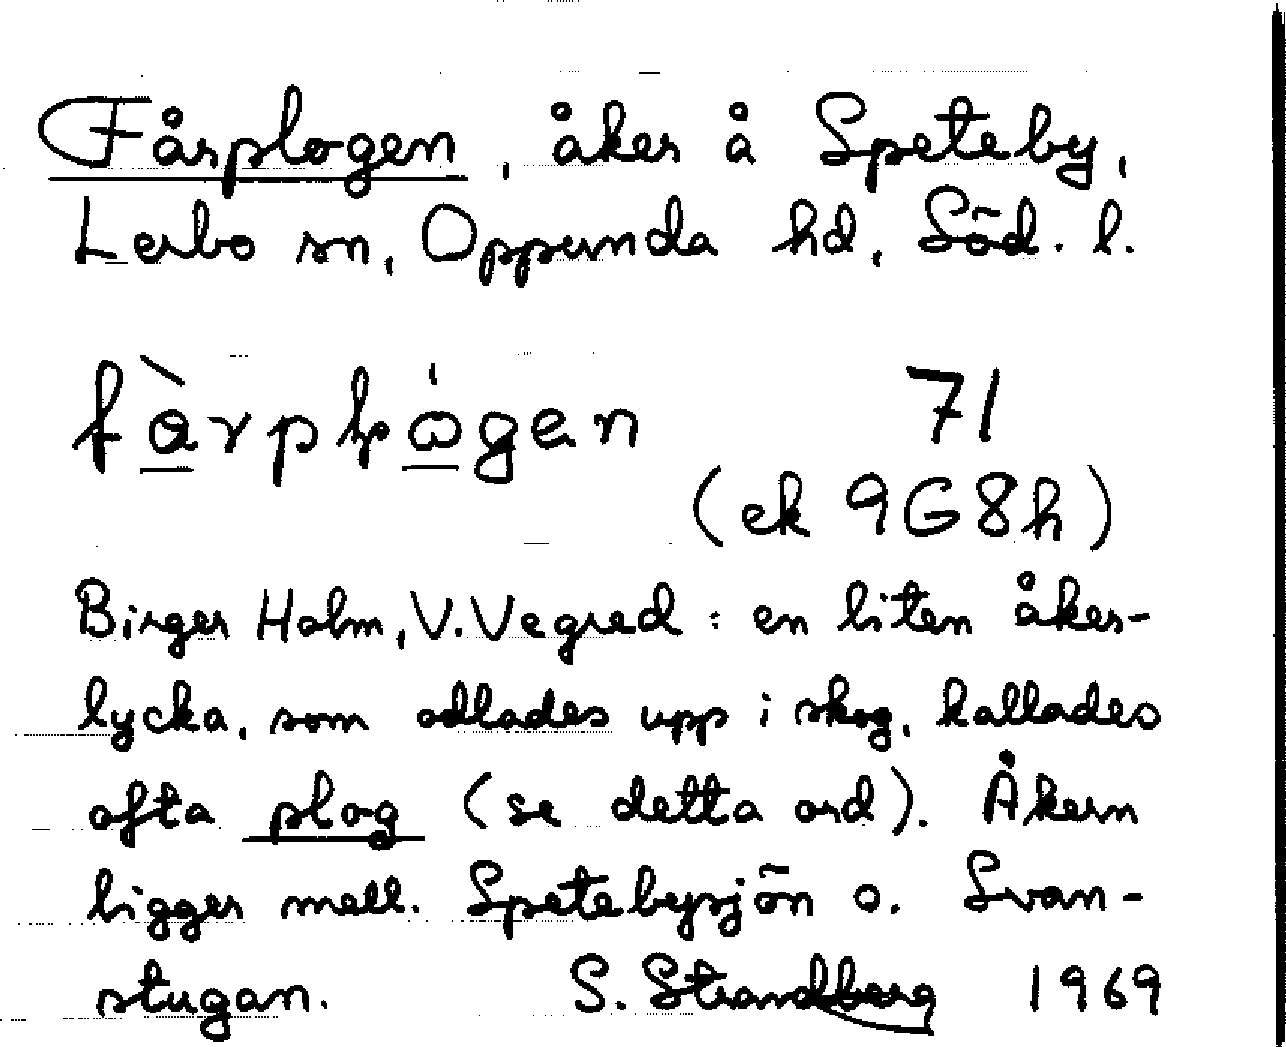 Fårplogen, åker å Speteby,
Lerbo sn, Oppunda hd, Söd. l.
71
(ek 9G8h)
Birger Holm, V. Vegred: en liten åker-
lycka, som odlades upp i skog, kallades
ofta plog (se detta ord). Åkern
ligger mell. Spetebysjön o. Svan-
stugan. S. Strandberg 1969